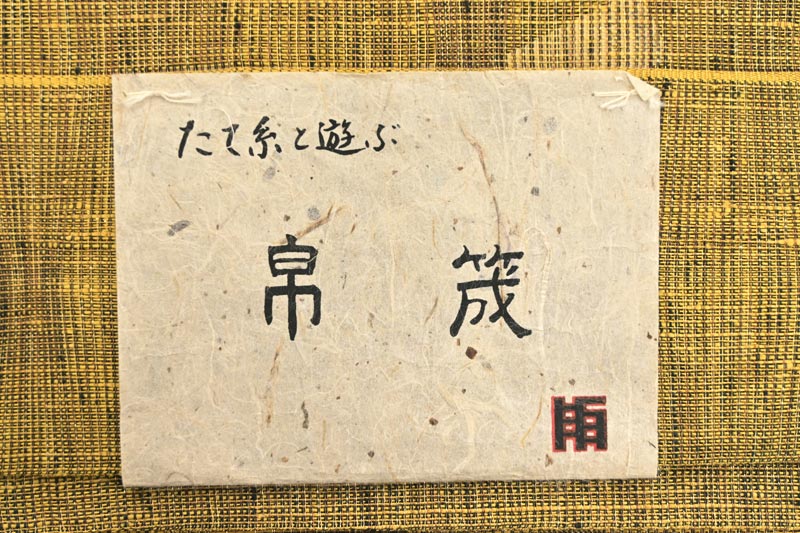 たて糸と遊ぶ
帛 筬